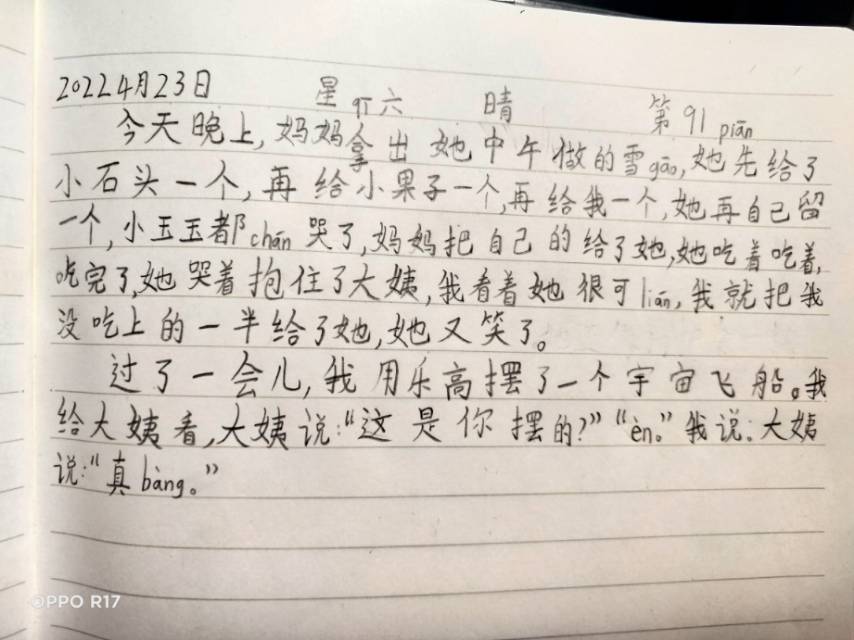 2022 4月23日 星qī六 晴 第91 piān
今天晚上,妈妈拿出她中午做的雪gāo,她先给了
小石头一个,再给小果子一个,再给我一个,她再自己留
一个,小玉玉都chán哭了,妈妈把自己的给了她,她吃着吃着,
吃完了,她哭着抱住了大姨,我看着她很可lián,我就把我
没吃上的一半给了她,她又笑了。
过了一会儿,我用乐高摆了一个宇宙飞船。我
给大姨看,大姨说:“这是你摆的?”“èn。”我说.大姨
说:“真bàng。”
OPPO R17